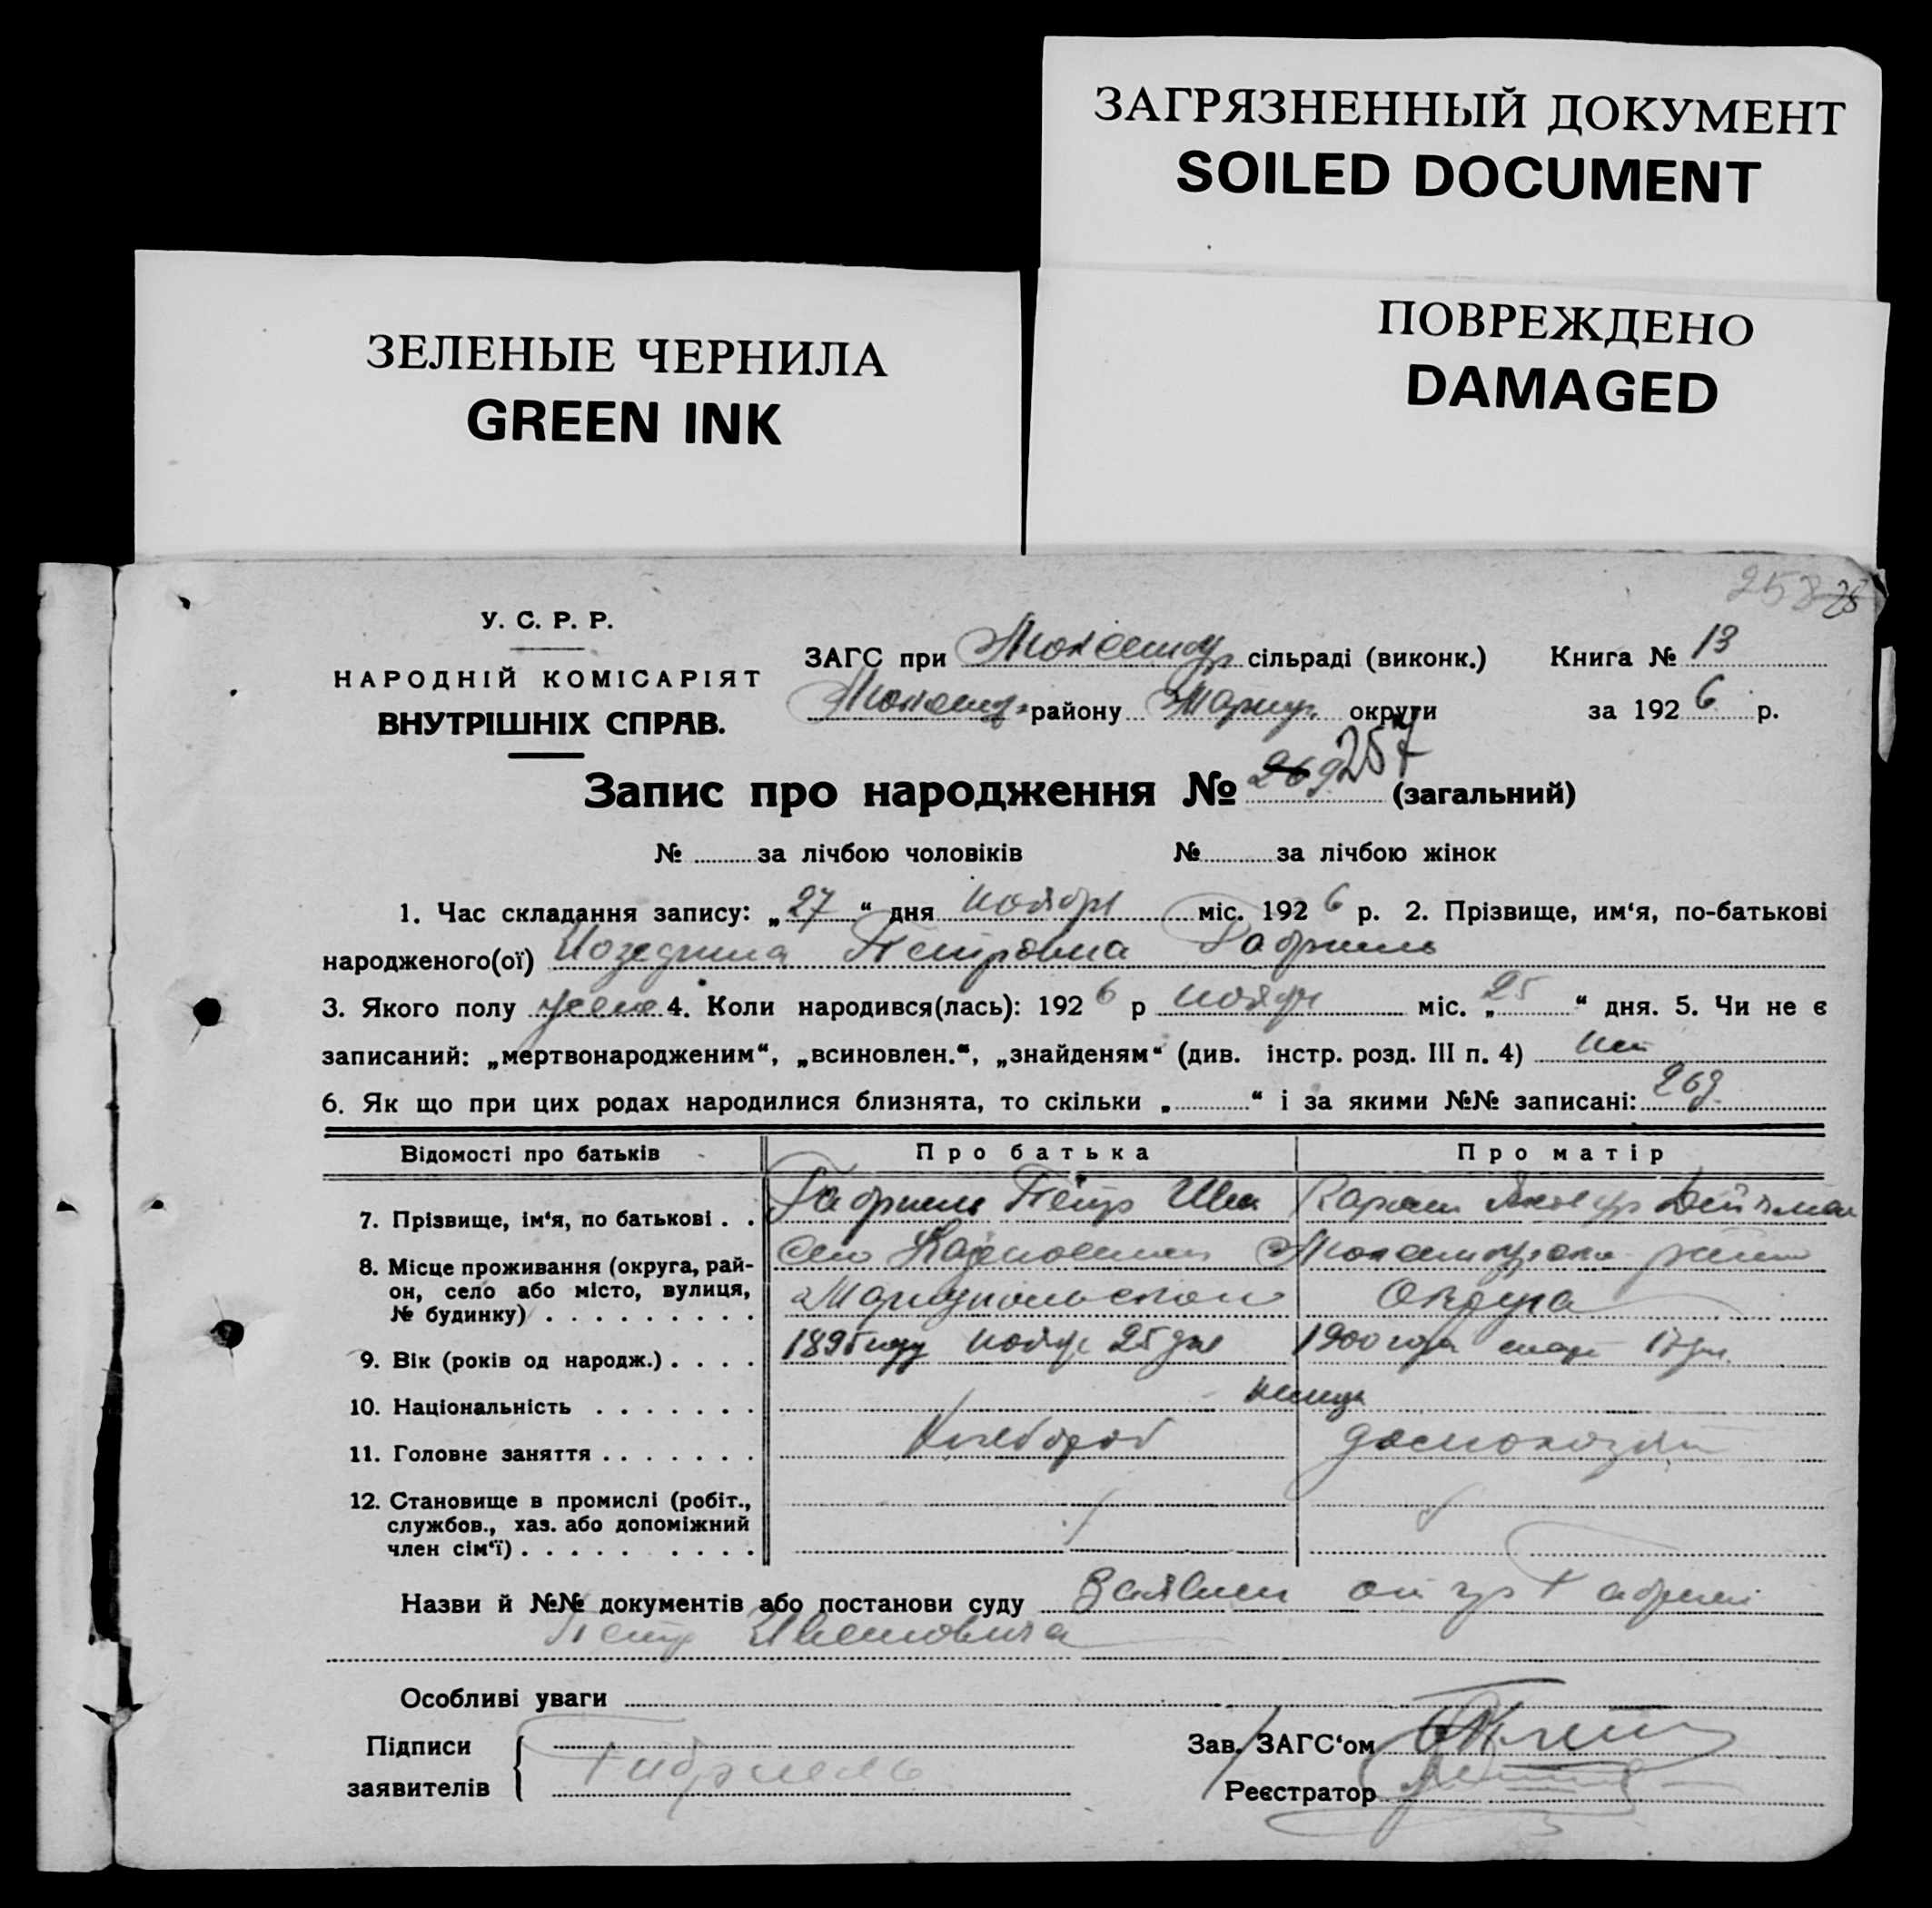 ЗАГРЯЗНЕННЫЙ ДОКУМЕНТ
SOILED DOCUMENT
ЗЕЛЕНЫЕ ЧЕРНИЛА
GREEN INK
ПОВРЕЖДЕНО
DAMAGED
258
У. С. Р. Р.
НАРОДНІЙ КОМІСАРІЯТ
ВНУТРІШНІХ СПРАВ.
ЗАГС при сільраді (виконк.) Книга № 13
району Мариуп. округи за 1926 р.
Запис про народження № 269 257 (загальний)
№ за лічбою чоловіків № за лічбою жінок
1. Час складання запису: „27“ дня ноября міс. 1926 р. 2. Прізвище, им‘я, по-батькові
народженого(ої) Петровна Габриель
3. Якого полу жен 4. Коли народився(лась): 1926 р ноября міс. „25“ дня. 5. Чи не є
записаний: „мертвонародженим“, „всиновлен.“, „знайденям“ (див. інстр. розд. III п. 4) нет
6. Як що при цих родах народилися близнята, то скільки „ “ і за якими №№ записані: 269
Відомості про батьків Про батька Про матір
7. Прізвище, ім‘я, по батькові . . Габриель Петр Иван
8. Місце проживання (округа, рай-
он, село або місто, вулиця,
№ будинку) . . . . . . . . . Мариупольской Округа
9. Вік (років од народж.) . . . . 1895 году нояб 25 дня 1900 года
10. Національність . . . . . . . немцы
11. Головне заняття . . . . . . . Хлебороб домохозяй
12. Становище в промислі (робіт.,
службов., хаз. або допоміжний
член сім‘ї) . . . . . . . . .
Назви й №№ документів або постанови суду Заявлен от гр Габриель
Петр Ивановича
Особливі уваги
Підписи
заявителів Габриель
Зав. ЗАГС‘ом
Реєстратор